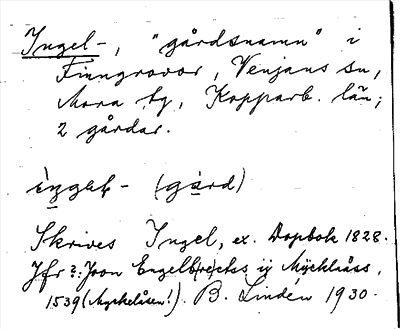 Ingel-, "gårdsnamn" i
Finngruvor, Venjans sn,
Mora tg, Kopparb. län;
2 gårdar.
ìŋgəl- (gård)
Skrives Ingel, ex. Dopbok 1828.
Jfr?: Joon Engelb(re)ctss ij Mÿcklååss,
1539 (Myckelåsen!). B. Lindén 1930.